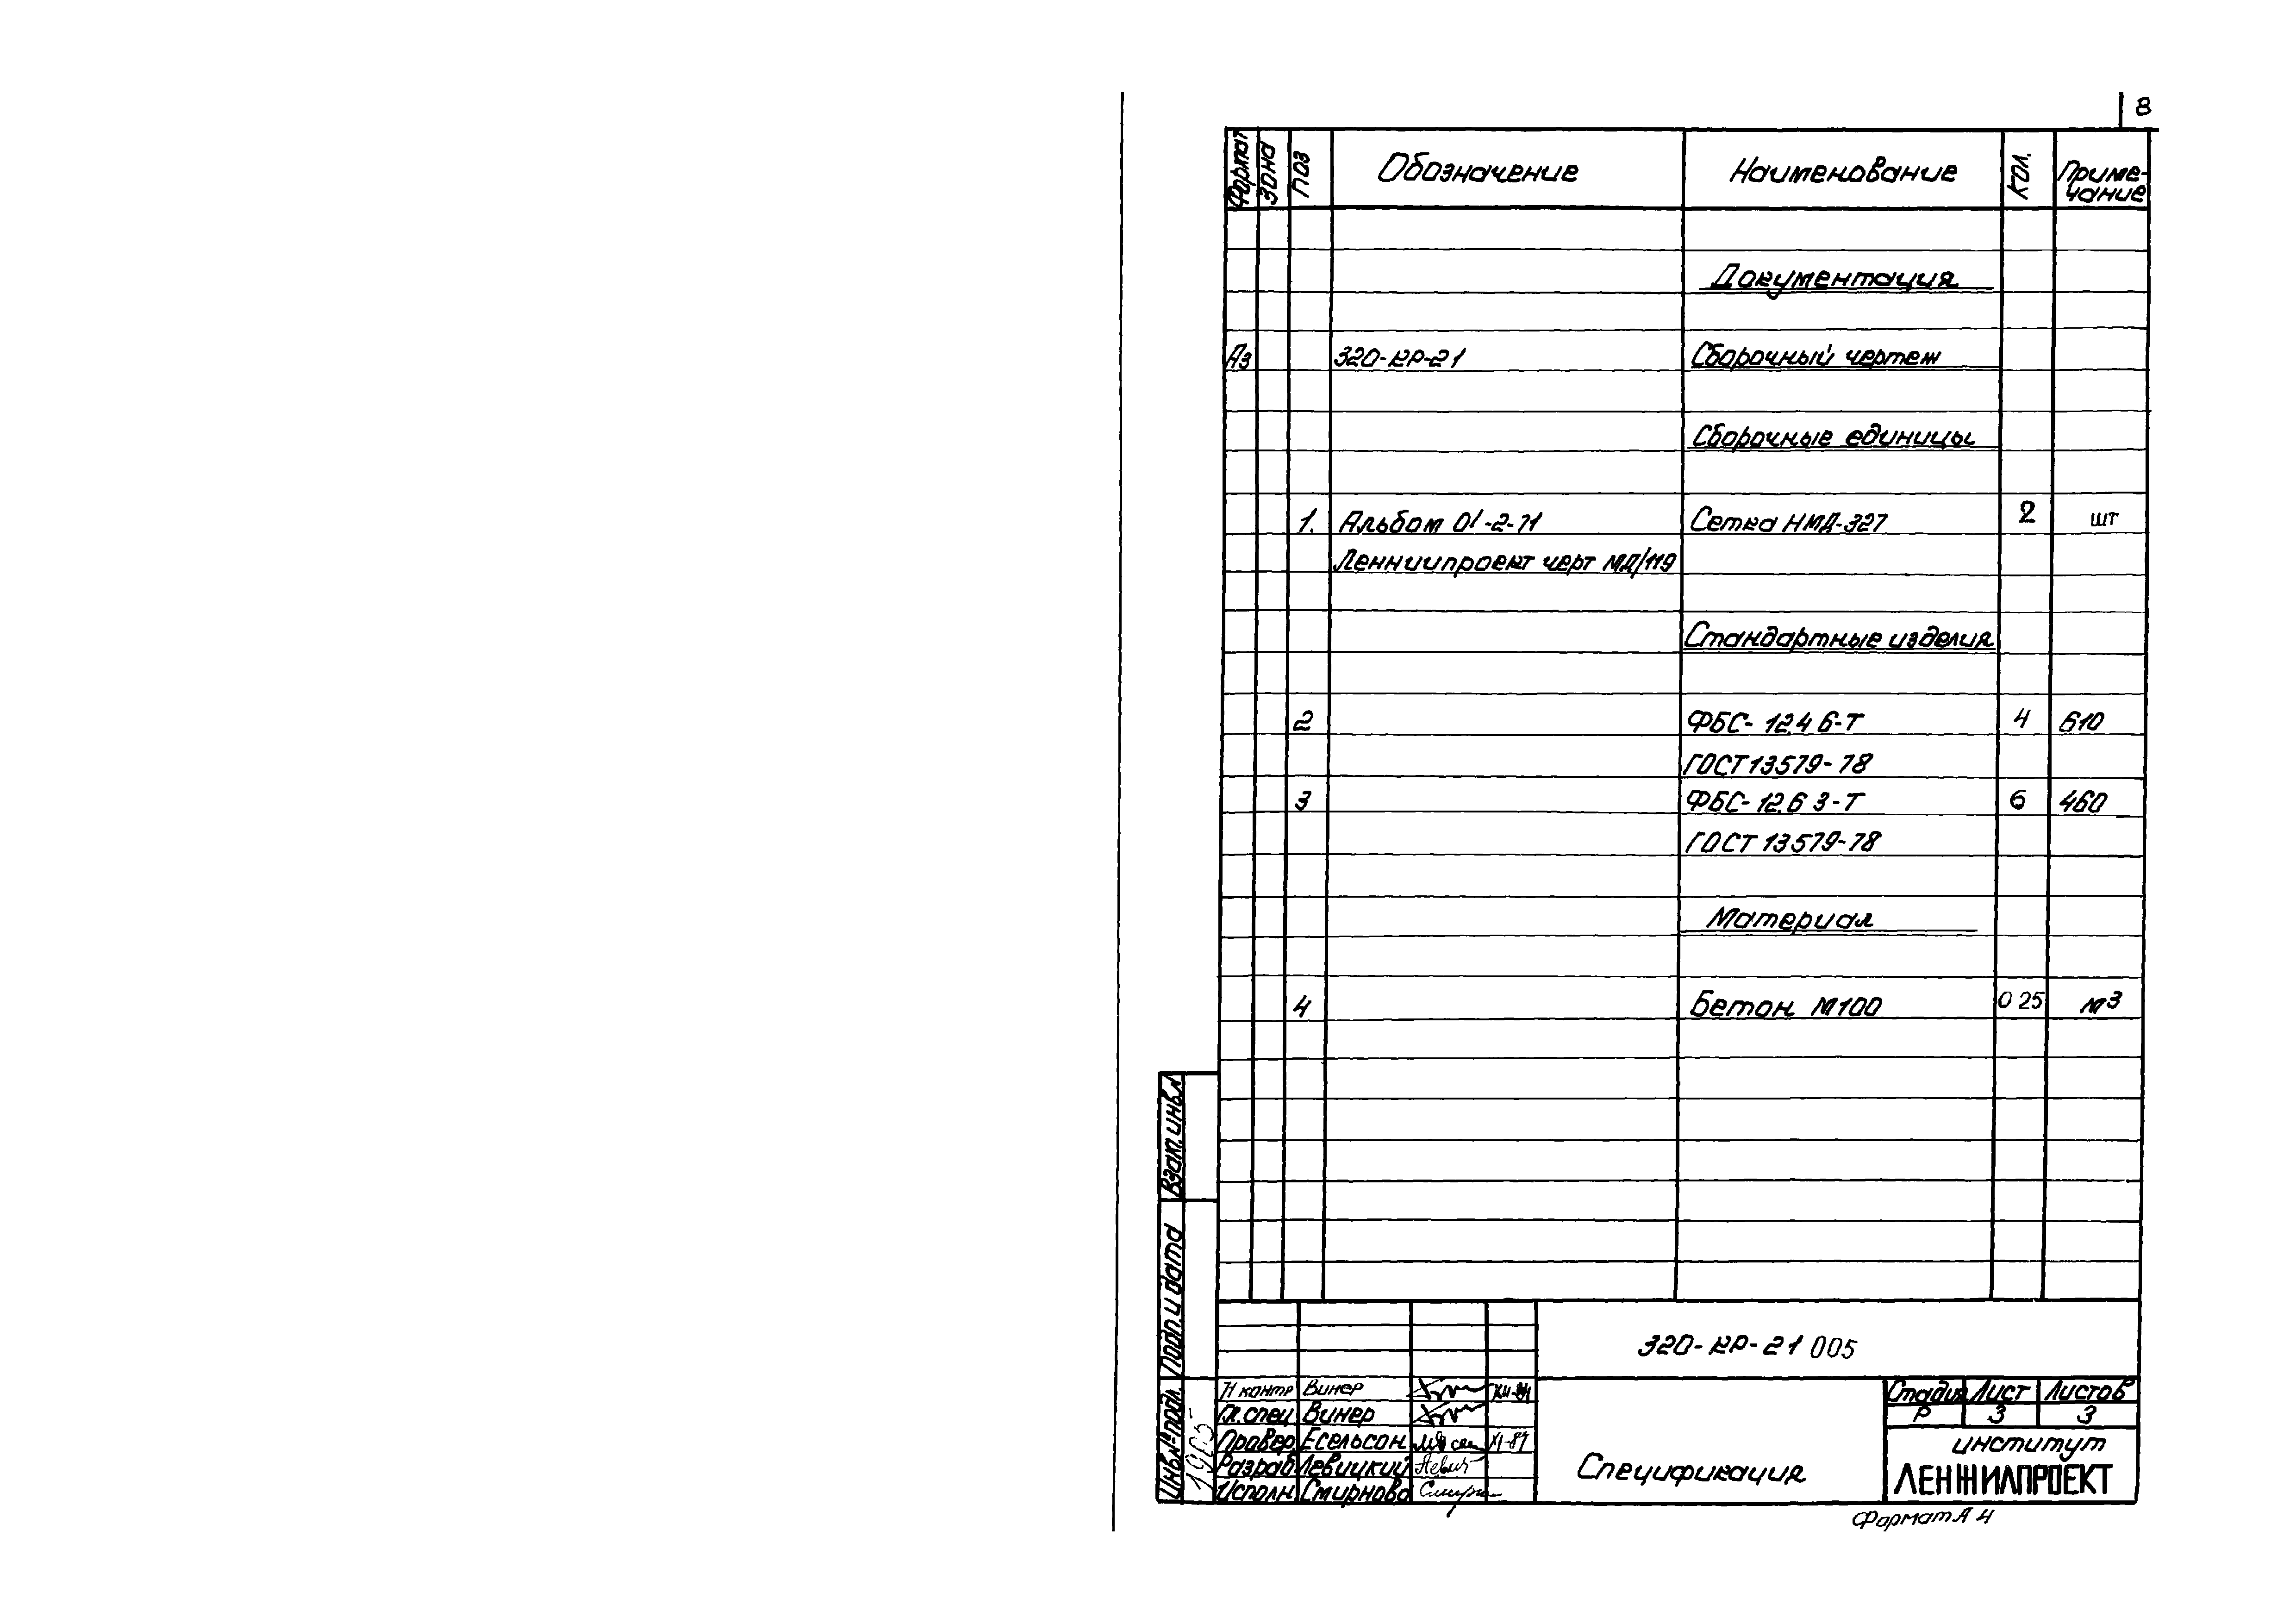 8
Формат Зона Поз Обозначение Наименование Кол. Приме-
чание
Документация
А3 320-КР-21 Сборочный чертеж
Сборочные единицы
1. Альбом 01-2-71 Сетка НМД-327 2 шт
Ленниипроект черт МД/119
Стандартные изделия
2 ФБС- 12.4 6-Т 4 610
ГОСТ 13579-78
3 ФБС- 12.6 3-Т 6 460
ГОСТ 13579-78
Материал
4 Бетон М100 0 25 м3
Взам.инв.N
Подп. и дата
Инв.№ подл.
320-КР-21 005
Н контр Винер XII-84
Гл. спец Винер
Провер Есельсон XI-84
Разраб Левицкий
Исполн Смирнова
Спецификация
Стадия Лист Листов
Р 3 3
институт
ЛЕНЖИЛПРОЕКТ
Формат А 4